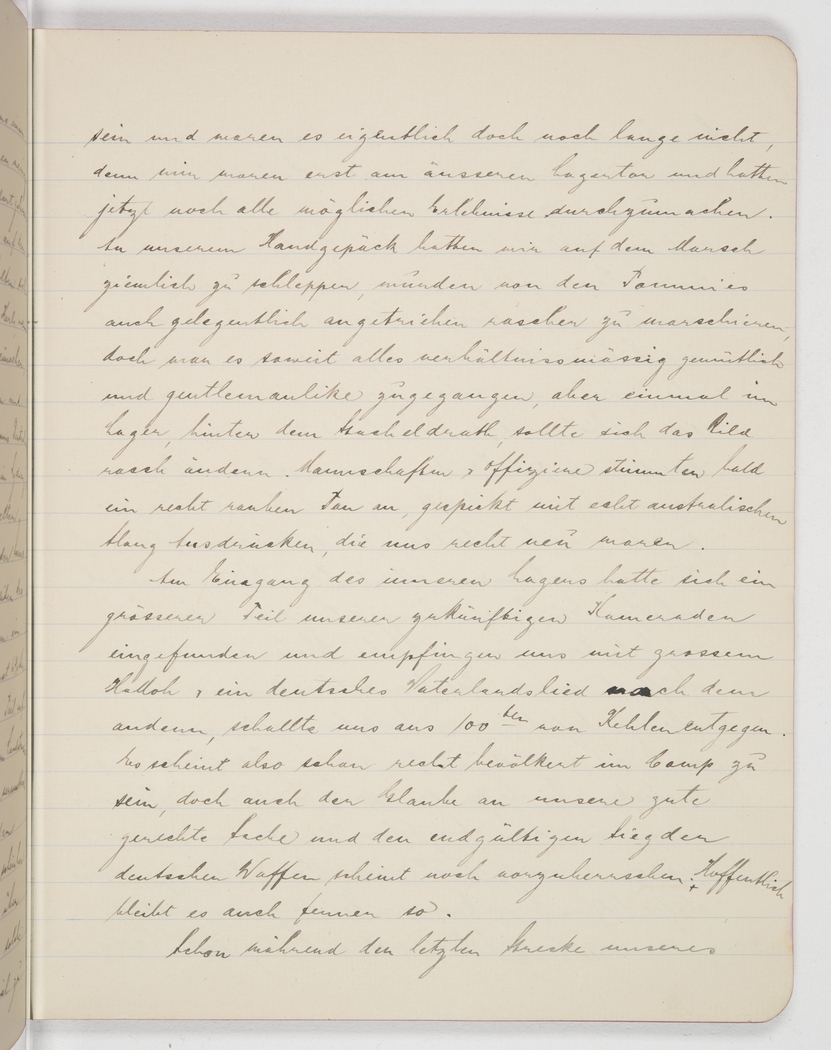 sein und waren es eigentlich doch noch lange nicht,
denn wir waren erst am äusseren Lagertor und hatten
jetzt noch alle möglichen Erlebnisse durchzumachen.
An unserem Handgepäck hatten wir auf dem Marsch
ziemlich zu schleppen, wurden von den Tommies
auch gelegentlich angetrieben rascher zu marschieren,
doch war es soweit alles verhältnissmässig gemütlich
und gentlemanlike zugegangen, aber einmal im
Lager, hinter dem Stacheldrath, sollte sich das Bild
rasch ändern. Mannschaften & Offiziere stimmten bald
ein recht rauhen Ton an, gespickt mit echt australischen
Slang Ausdrücken, die uns recht neu waren.
Am Eingang des inneren Lagers hatte sich ein
grösserer Teil unserer zukünftigen Kameraden
eingefunden und empfingen uns mit grossem
Halloh, & ein deutsches Vaterlandslied nach dem
andern, schallte uns aus 100ten von Kehlen entgegen.
Es scheint also schon recht bevölkert im Camp zu
sein, doch auch der Glaube an unsere gute
gerechte Sache und den endgültigen Sieg der
deutschen Waffen scheint noch vorzuherrschen. Hoffentlich
bleibt es auch ferner so.
Schon während der letzten Strecke unseres